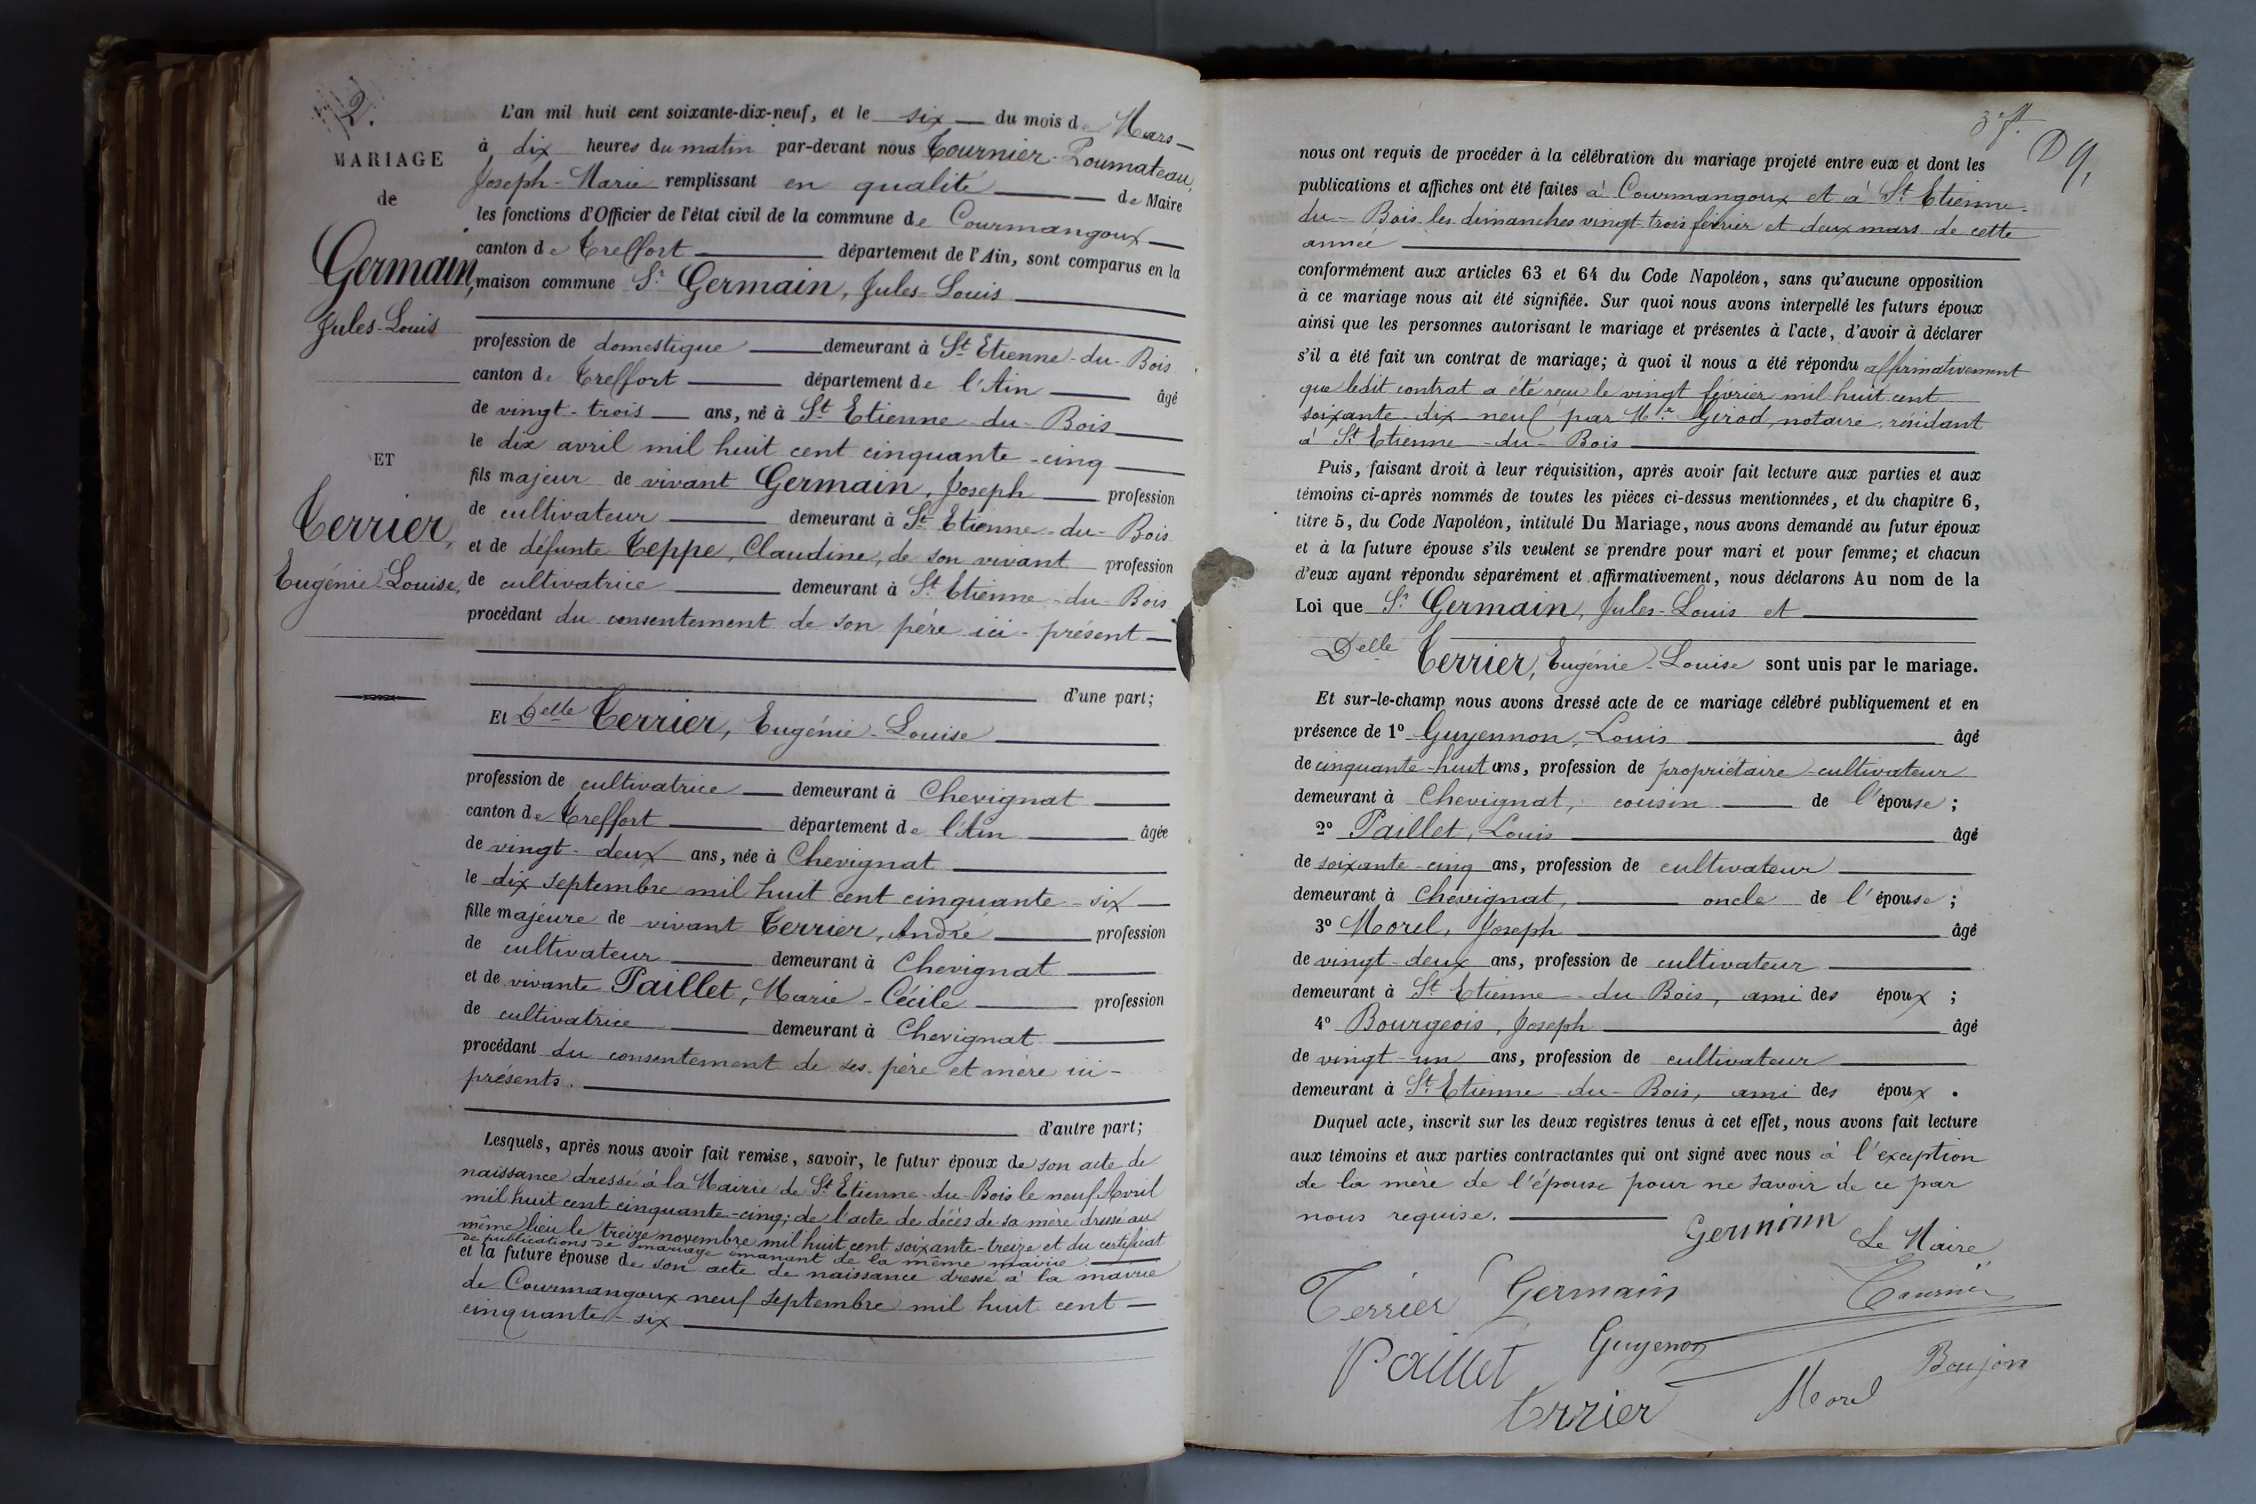 2.
MARIAGE
de
Germain,
Jules-Louis
ET
Terrier,
Eugénie-Louise,
L'an mil huit cent soixante-dix-neuf, et le six du mois de Mars
à dix heures du matin par-devant nous Tournier-Poumateau,
Joseph-Marie remplissant en qualité de Maire
les fonctions d'Officier de l'état civil de la commune de Courmangoux
canton de Treffort département de l'Ain, sont comparus en la
maison commune Sr Germain, Jules-Louis
profession de domestique demeurant à St Etienne-du-Bois
canton de Treffort département de l'Ain âgé
de vingt-trois ans, né à St Etienne-du-Bois
le dix avril mil huit cent cinquante-cinq
fils majeur de vivant Germain, Joseph profession
de cultivateur demeurant à St Etienne-du-Bois
et de défunte Teppe, Claudine, de son vivant profession
de cultivatrice demeurant à St Etienne-du-Bois
procédant du consentement de son père ici-présent
d'une part;
Et Delle Terrier, Eugénie-Louise
profession de cultivatrice demeurant à Chevignat
canton de Treffort département de l'Ain âgée
de vingt-deux ans, née à Chevignat
le dix septembre mil huit cent cinquante-six
fille majeure de vivant Terrier, André profession
de cultivateur demeurant à Chevignat
et de vivante Paillet, Marie-Cécile profession
de cultivatrice demeurant à Chevignat
procédant du consentement de ses père et mère ici-
présents.
d'autre part;
Lesquels, après nous avoir fait remise, savoir, le futur époux de son acte de
naissance dressé à la Mairie de St Etienne-du-Bois le neuf Avril
mil huit cent cinquante-cinq; de l'acte de décès de sa mère dressé au
même lieu le treize novembre mil huit cent soixante-treize et du certificat
de publications de mariage émanant de la même mairie.
et la future épouse de son acte de naissance dressé à la mairie
de Courmangoux neuf septembre mil huit cent
cinquante-six
3e f.
D 9,
nous ont requis de procéder à la célébration du mariage projeté entre eux et dont les
publications et affiches ont été faites à Courmangoux et à St Etienne-
du-Bois les dimanches vingt-trois février et deux mars de cette
année
conformément aux articles 63 et 64 du Code Napoléon, sans qu'aucune opposition
à ce mariage nous ait été signifiée. Sur quoi nous avons interpellé les futurs époux
ainsi que les personnes autorisant le mariage et présentes à l'acte, d'avoir à déclarer
s'il a été fait un contrat de mariage; à quoi il nous a été répondu affirmativement
que ledit contrat a été reçu le vingt février mil huit cent
soixante-dix neuf par Me Girod, notaire, résidant
à St Etienne-du-Bois
Puis, faisant droit à leur réquisition, après avoir fait lecture aux parties et aux
témoins ci-après nommés de toutes les pièces ci-dessus mentionnées, et du chapitre 6,
titre 5, du Code Napoléon, intitulé Du Mariage, nous avons demandé au futur époux
et à la future épouse s'ils veulent se prendre pour mari et pour femme; et chacun
d'eux ayant répondu séparément et affirmativement, nous déclarons Au nom de la
Loi que Sr Germain, Jules-Louis et
Delle Terrier, Eugénie-Louise sont unis par le mariage.
Et sur-le-champ nous avons dressé acte de ce mariage célébré publiquement et en
présence de 1º Guyennon, Louis âgé
de cinquante-huit ans, profession de propriétaire-cultivateur
demeurant à Chevignat, cousin de l'épouse;
2º Paillet, Louis âgé
de soixante-cinq ans, profession de cultivateur
demeurant à Chevignat, oncle de l'épouse;
3º Morel, Joseph âgé
de vingt-deux ans, profession de cultivateur
demeurant à St Etienne-du Bois, ami des époux;
4º Bourgeois, Joseph âgé
de vingt-un ans, profession de cultivateur
demeurant à St Etienne-du-Bois, ami des époux.
Duquel acte, inscrit sur les deux registres tenus à cet effet, nous avons fait lecture
aux témoins et aux parties contractantes qui ont signé avec nous à l'exception
de la mère de l'épouse pour ne savoir de ce par
nous requise.
Germain Le Maire
Terrier Germain Tournier
Paillet Guyenon Boujon
Terrier Morel